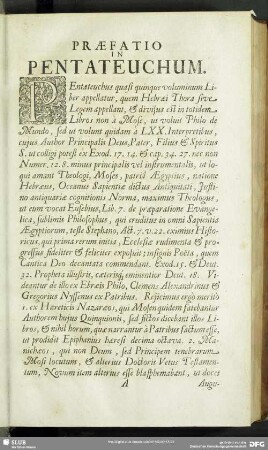 PRÆFATIO
IN
PENTATEUCHUM.
PEntateuchus quasi quinque voluminum Li-
ber appellatur, quem Hebræi Thora sive
Legem appellant, & divisus est in totidem
Libros non à Mose, ut voluit Philo de
Mundo, sed ut volunt quidam à LXX. Interpretibus,
cujus Author Principalis Deus, Pater, Filius & Spiritus
S. ut colligi potest ex Exod. 17. 14. & cap. 34. 27. nec non
Numer. 12. 8. minus principalis vel instrumentalis, ut lo-
qui amant Theologi, Moses, patriâ Ægyptius, natione
Hebræus, Oceanus Sapientiæ dictus Antiquitati, Justi-
no antiquariæ cognitionis Norma, maximus Theologus,
ut eum vocat Eusebius, Lib. 7. de præparatione Evange-
lica, sublimis Philosophus, qui eruditus in omni Sapientiâ
Ægyptiorum, teste Stephano, Act. 7. v. 22. eximius Histo-
ricus, qui prima rerum initia, Ecclesiæ rudimenta & pro-
gressus fideliter & feliciter exposuit; insignis Poëta, quem
Cantica Deo decantata commendant. Exod. 15. & Deut.
32. Propheta illustris, cæteris eminentior Deut. 18. Vi-
deantur de illo ex Ebræis Philo, Clemens Alexandrinus &
Gregorius Nyssenus ex Patribus. Rejicimus ergò meritò
1. ex Hæreticis Nazaræos, qui Mosen quidem fatebantur
Authorem hujus Quinquionis, sed fictos dicebant illos Li-
bros, & nihil horum, quæ narrantur à Patribus factum esse,
ut prodidit Epiphanius hæresi decima octava. 2. Ma-
nichæos, qui non Deum, sed Principem tenebrarum
Mosi locutum, & alterius Doctoris Vetus Testamen-
tum, Novum item alterius esse blasphemabant, ut docet
A Augu-
SLUB